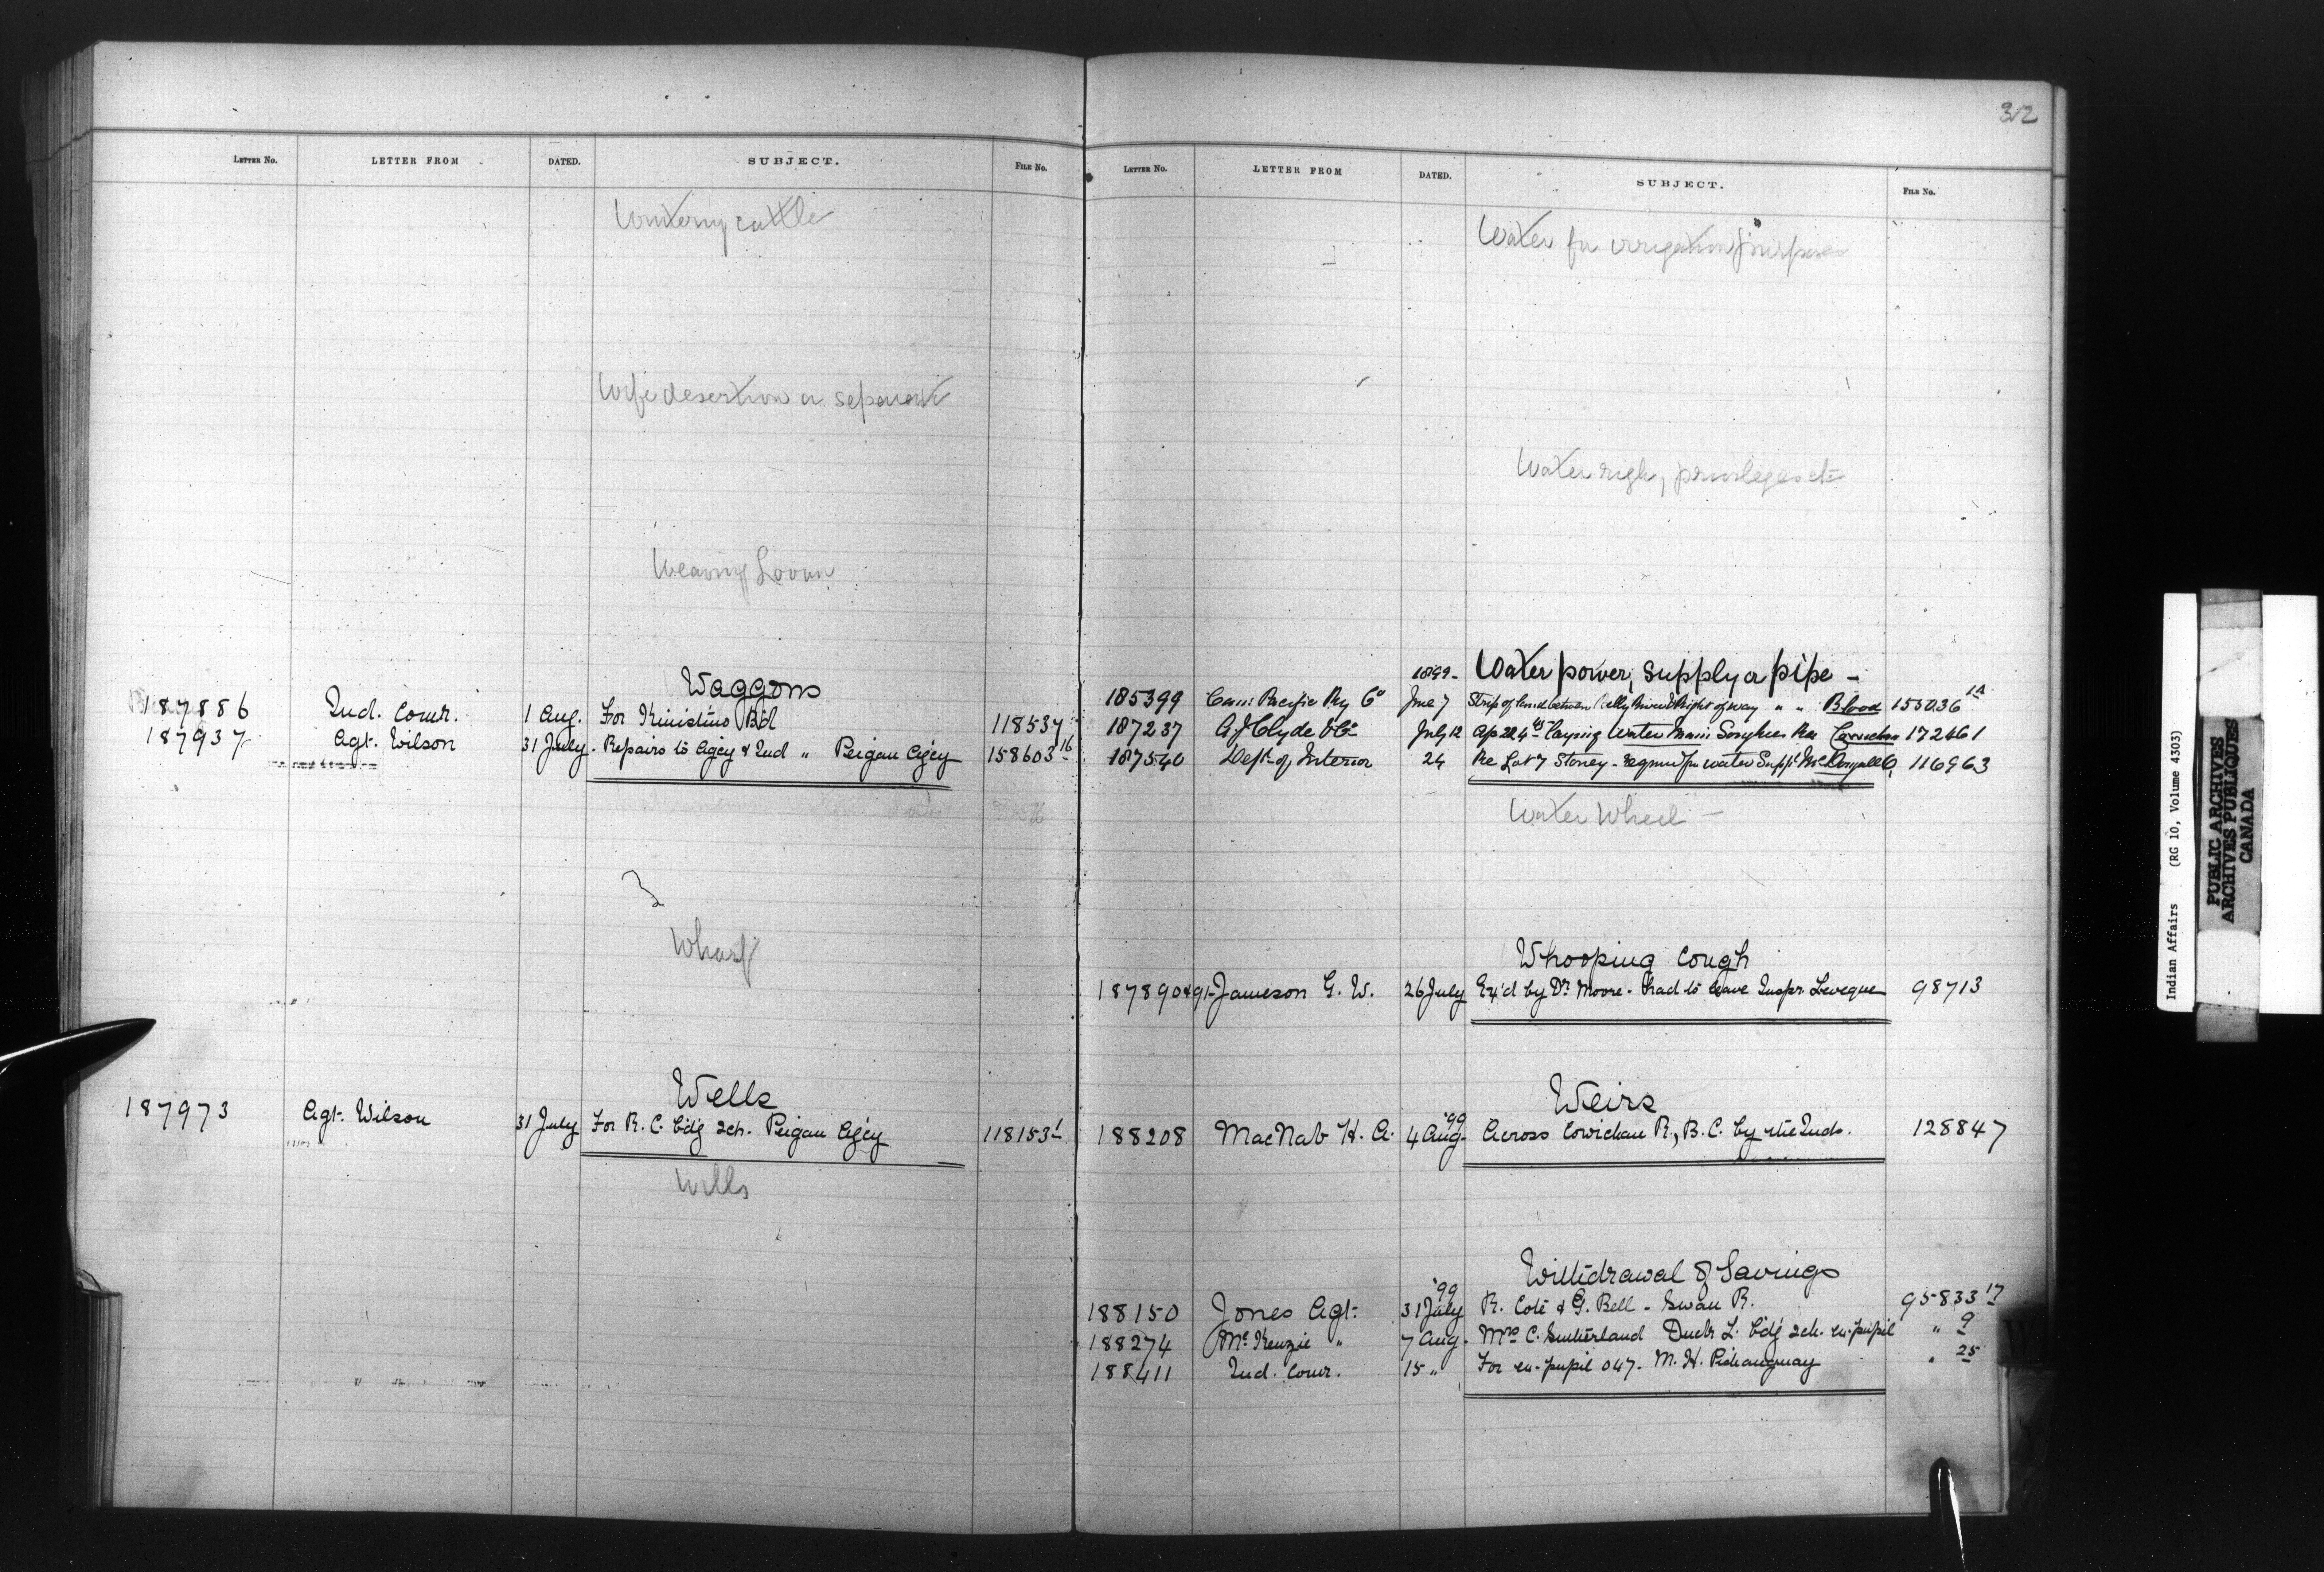 LETTER NO. LETTER FROM DATED. SUBJECT. FILE NO.
Wintering cattle
Wife desertion or separat
Weaving Loom
Waggons
187886 Ind. Comr. 1 Aug. For Kinistino Bd 118537
187937 Agt. Wilson 31 July. Repairs to Agcy & Ind " Peigan Agcy 158603 16
Wharf
Wells
187973 Agt. Wilson 31 July For R. C. b'd'g sch. Peigan Agcy 118153 1
Wills
32
LETTER NO. LETTER FROM DATED. SUBJECT. FILE NO.
Water for irrigation purposes
Water right, privileges etc
1899- Water power, supply or pipe -
185399 Can: Pacific Ry Co June 7 Strip of land between Belly River & Right of way " " Blood 155036
187237 A. J. Clyde & Co July 12 laying water main Songhees Res Cowichan 172461
187540 Dept of Interior 24 Re Lot 7 Stoney - reqmd for water Suppl McDougall 116963
Water Wheel -
Whooping Cough
187890 & 91- Jameson G. W. 26 July Ex'd by Dr Moore - had to leave Inspr. Leveque 98713
Weirs
'99
188208 MacNab H. A. 4 Aug- Across Cowichan R., B.C. by the Inds. 128847
Withdrawal of Savings
'99
188150 Jones Agt. 31 July R. Cote & G. Bell - Swan R. 95833 17
188274 McKenzie " 7 Aug. Mrs C. Sutherland Duck L. b'd'g sch. ex-pupil " 9
188411 Ind. Comr. 15 " For ex-pupil 047- M. H. " 25
Indian Affairs (RG 10, Volume 4303)
PUBLIC ARCHIVES
ARCHIVES PUBLIQUES
CANADA